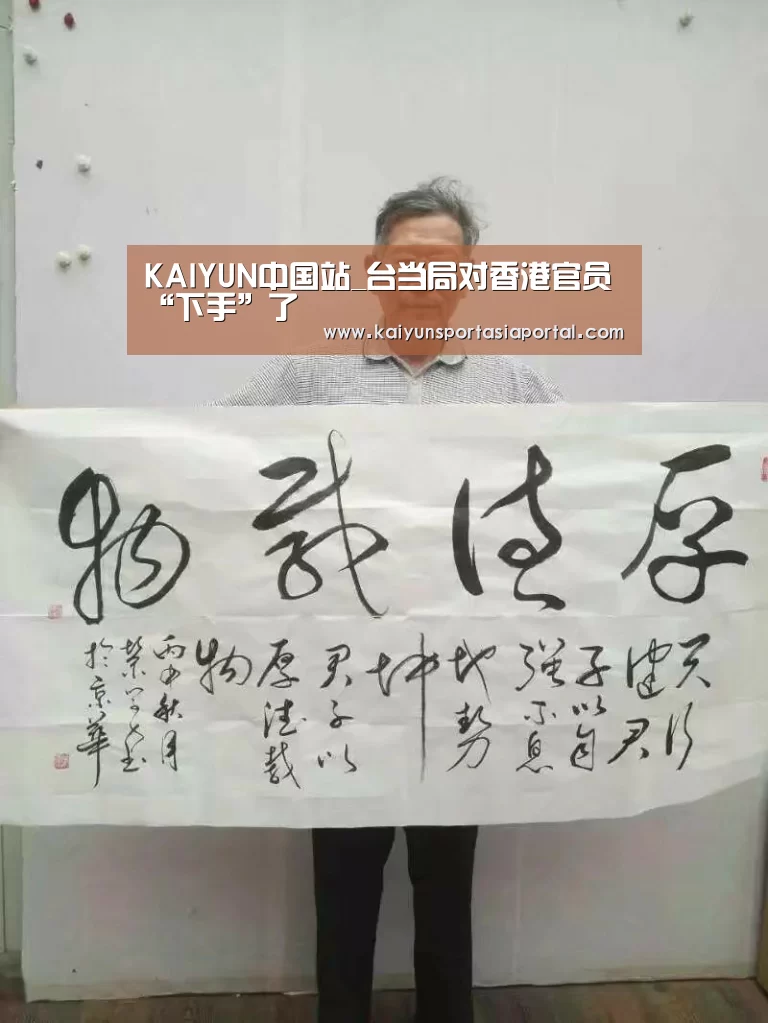 KAIYUN中国站_台当局对香港官员
“下手”了
www.kaiyunsportasiaportal.com
厚德载物
天行
健君
子以自
强不息
地势
坤
君子以
厚德载
物
丙申秋月
於京華